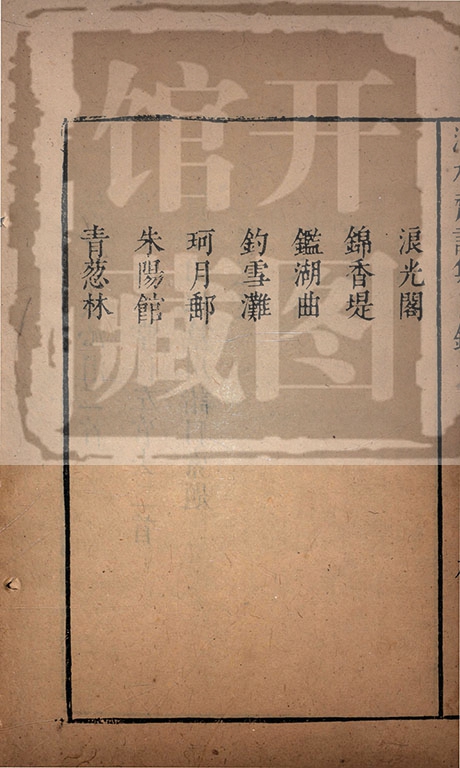 浪光閣
錦香堤
鑑湖曲
釣雪灘
珂月郵
朱陽館
青葱林
开图
馆藏